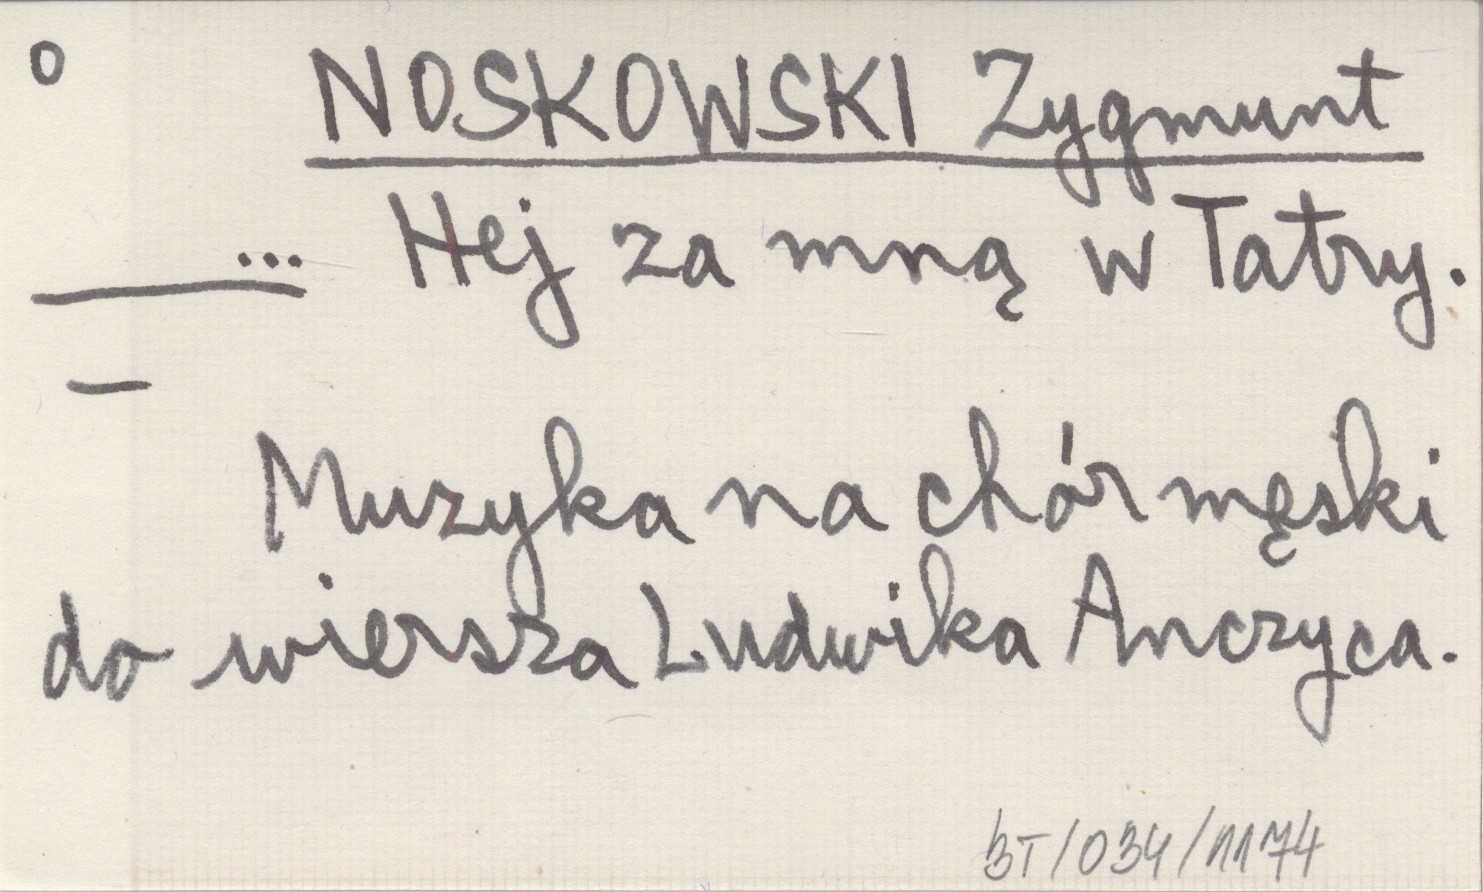 o NOSKOWSKI Zygmunt
... Hej za mną w Tatry.
—
Muzyka na chór męski
do wiersza Ludwika Anczyca.
BT/034/1174